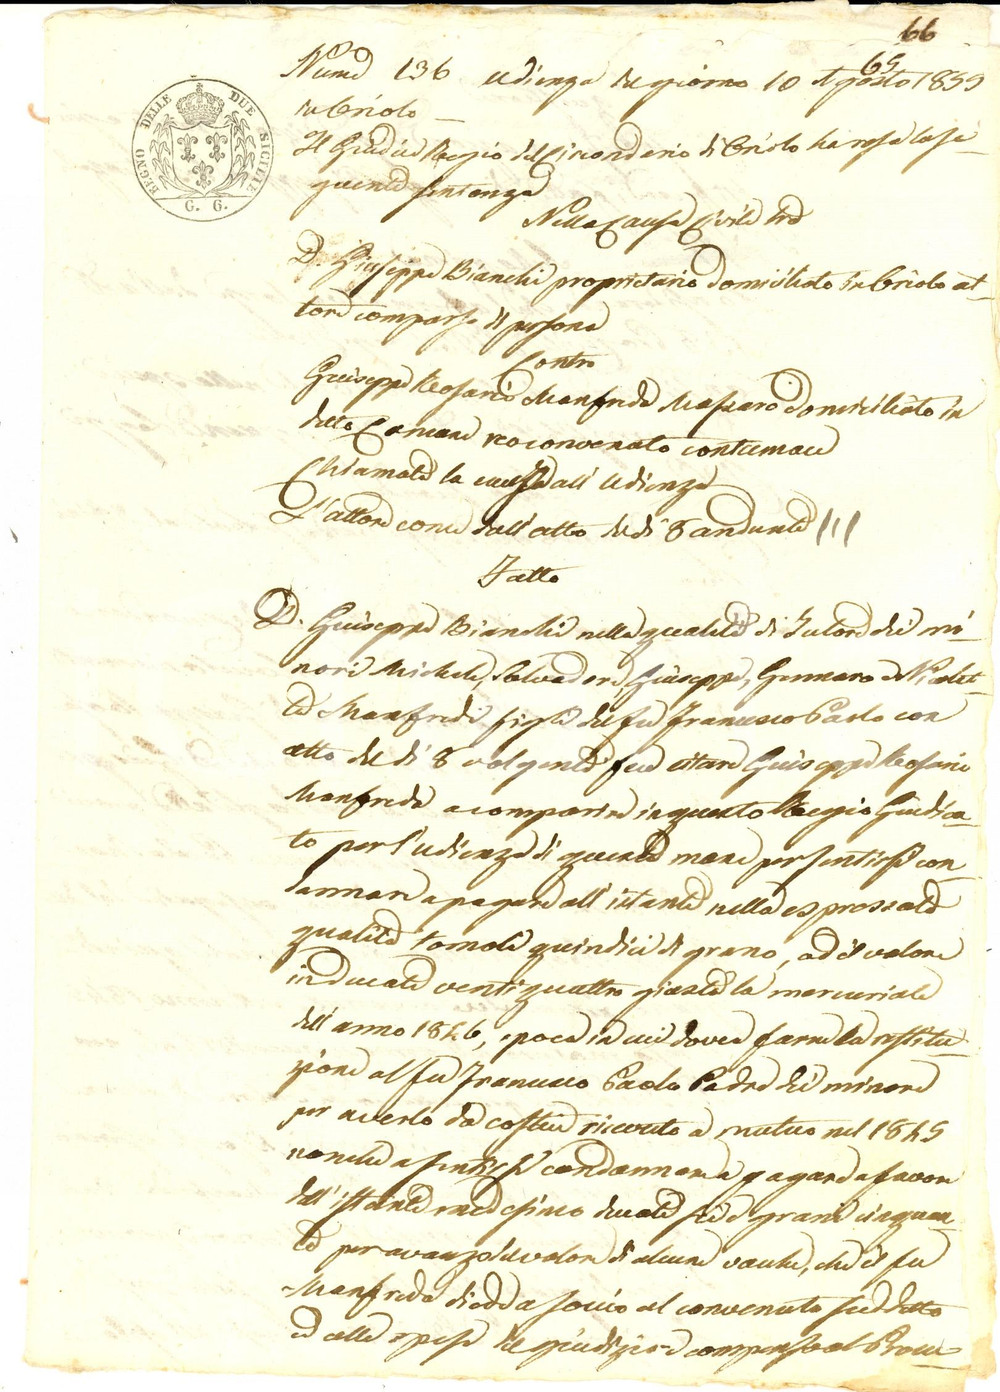 66
65
REGNO DELLE DUE SICILIE
G. G.
Num 136 udienza del giorno 10 Agosto 1859
in Criolo
Il Giudice Regio del Circondario di Criolo ha resa la se-
guente sentenza
Nella Causa Civile tra
D. Giuseppe Bianchi proprietario domiciliato in Criolo at-
tore comparso di persona
Contro
Giuseppe Rosario Manfreda Massaro domiciliato in
detto Comune reo convenuto contumace
Chiamata la causa all' udienza
L'attore come dall'atto de dì 8 andante
Fatto
D. Giuseppe Bianchi nella qualità di Tutore dei mi-
nori Michele, Salvadore, Giuseppe, Gennaro e Nicolet-
ta Manfredi figli del fu Francesco Paolo con
atto de dì 8 volgente fece citare Giuseppe Rosario
Manfreda a comparire in questo Regio Giudica-
to per l'udienza di questa mane per sentirsi con-
dannare a pagare all' istante nella espressata
qualità tomoli quindici di grano, od il valore
in ducati ventiquattro giusta la mercuriale
dell'anno 1846, epoca in cui dovea farne la restitu-
zione al fu Francesco Paolo Padre dei minori
per averlo da costui ricevuto a mutuo nel 1845
nonché a sentirsi condannare a pagare a favore
dell'istante medesimo ducati sei e grani cinquan-
ta per avanzo del valore di alcune vacche, che il fu
Manfreda diede a soccio al convenuto suddetto
ed alle spese del giudizio e compenso al Procu-